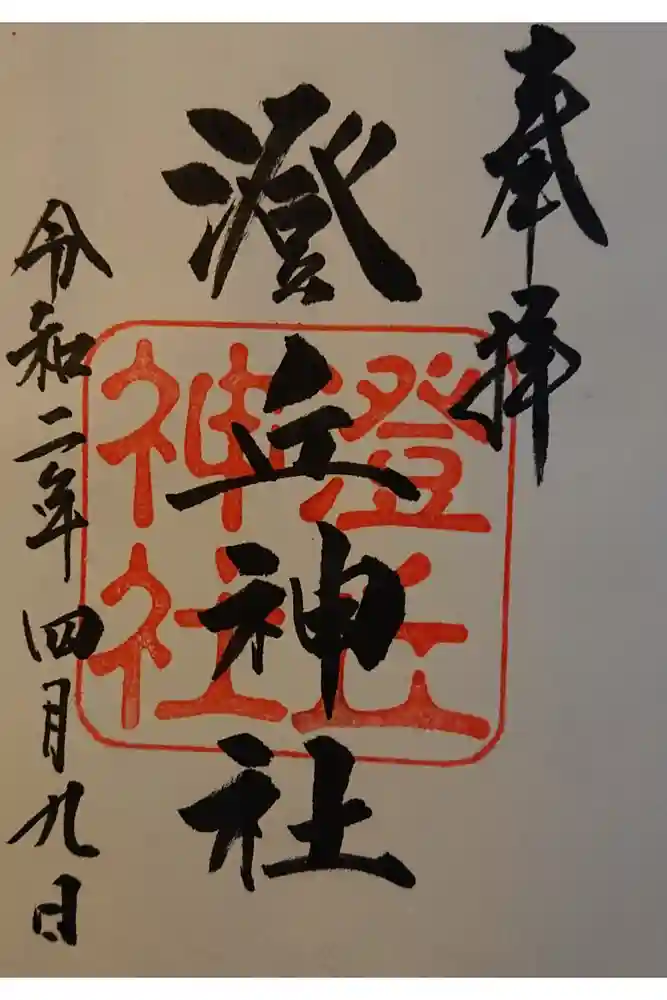 奉拝
澄丘神社
令和二年四月九日
澄丘
神社